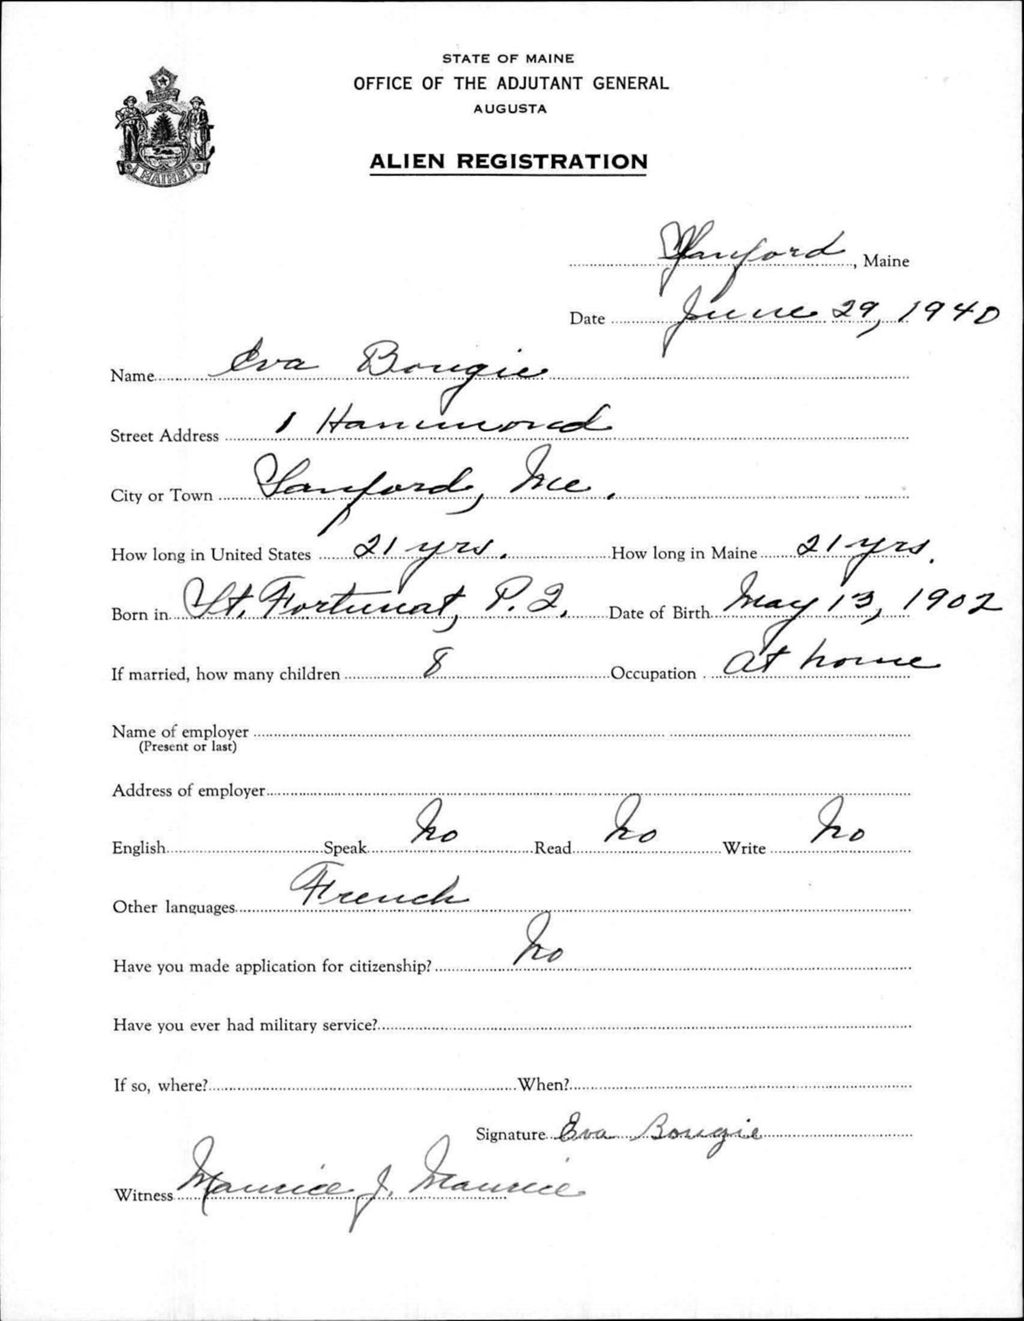 STATE OF MAINE
OFFICE OF THE ADJUTANT GENERAL
AUGUSTA
MAINE
ALIEN REGISTRATION
Sanford, Maine
Date June 29, 1940
Name Eva Bougie
Street Address 1 Hammond
City or Town Sanford, Me.
How long in United States 21 yrs. How long in Maine 21 yrs.
Born in St. Fortunat, P.Q. Date of Birth May 13, 1902
If married, how many children 8 Occupation At home
Name of employer
(Present or last)
Address of employer
English Speak No Read No Write No
Other languages French
Have you made application for citizenship? No
Have you ever had military service?
If so, where? When?
Signature Eva Bougie
Witness Maurice J. Maurice